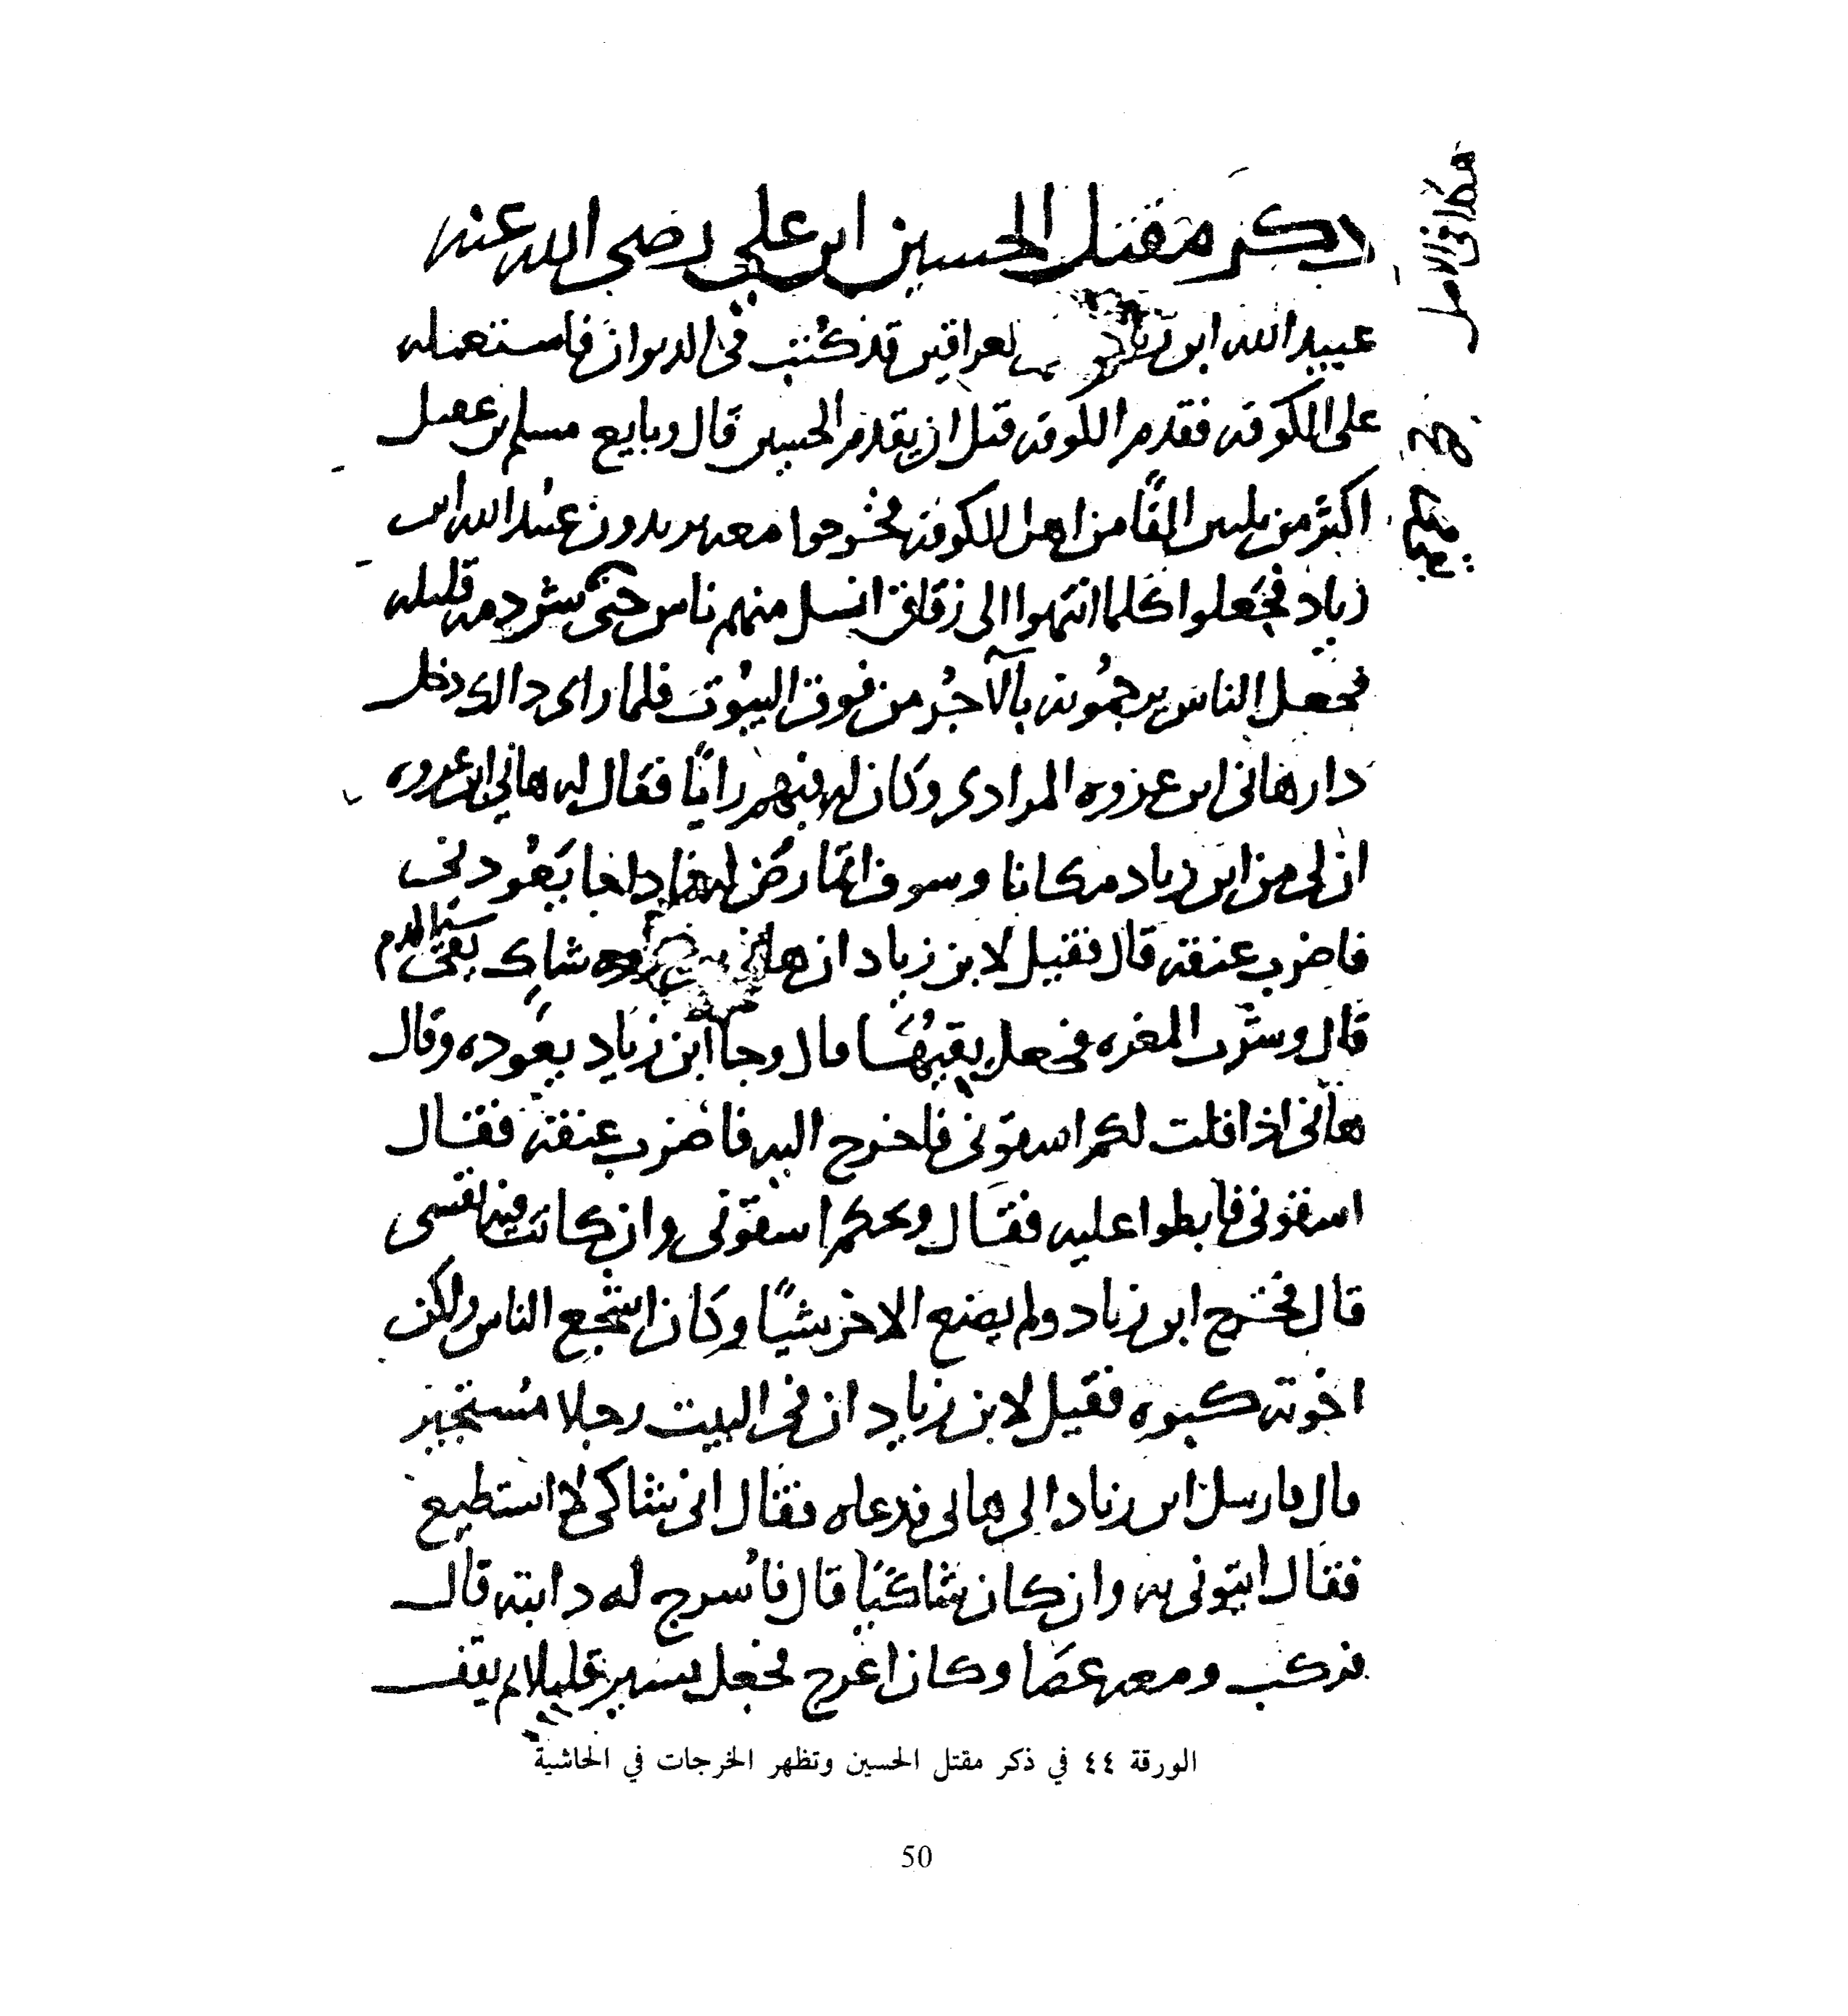 ذكر مقتل الحسين ابن علي رضي الله عنه
عبيد الله ابن زياد لعراقين قد كتب في الديوان فاستعمله
على الكوفه فقدم الكوفه قبل ان يقدم الحسين قال وبايع مسلم بن عقيل
اكثر من ثلثين الفًا من اهل الكوفه فخرجوا معه يريدون عبيد الله ابن
زياد فجعلوا كلما انتهوا الى زقاق انسل منهم ناس حتى شرذمه قليله
فجعل الناس يرجمونه بالآجُر من فوق البيوت فلما راى ذالك دخل
دار هانى ابن عروه المرادى وكان له فيهم رايًا فقال له هاني ابن عروه
ان لى من ابن زياد مكانا وسوف اتمارض له فاذا جا يعُودني
فاضرب عنقه قال فقيل لابن زياد ان هانى بن عروه شاك يقئ الدم
قال وشرب المغره فجعل يقيئها قال وجا ابن زياد يعوده وقال
هانى اذا قلت لكم اسقونى فاخرج اليه فاضرب عنقه فقال
اسقونى فابطوا عليه فقال ويحكم اسقونى وان كانت فيه نفسى
قال فخرج ابن زياد ولم يصنع الاخر شيًا وكان اشجع الناس ولكن
اخذته كبوه فقيل لابن زياد ان في البيت رجلا مُستجير
قال فارسل ابن زياد الى هانى فدعاه فقال انى شاكى لا استطيع
فقال ايتونى به وان كان شاكيًا قال فاُسرج له دابته قال
فركب ومعه عصا وكان اعرج فجعل يسير قليلا ثم يقف
الورقة ٤٤ في ذكر مقتل الحسين وتظهر الخرجات في الحاشية
50